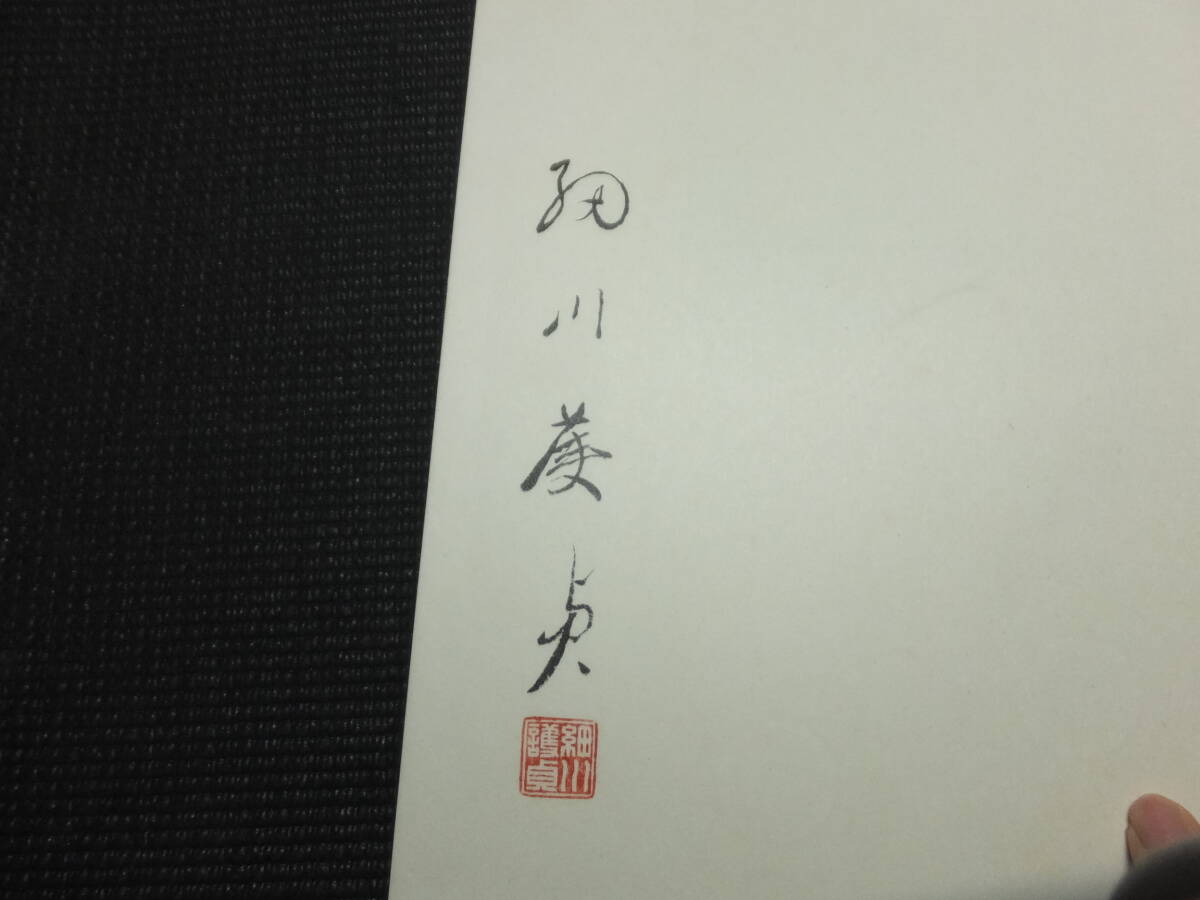 細川護貞
細川
護貞